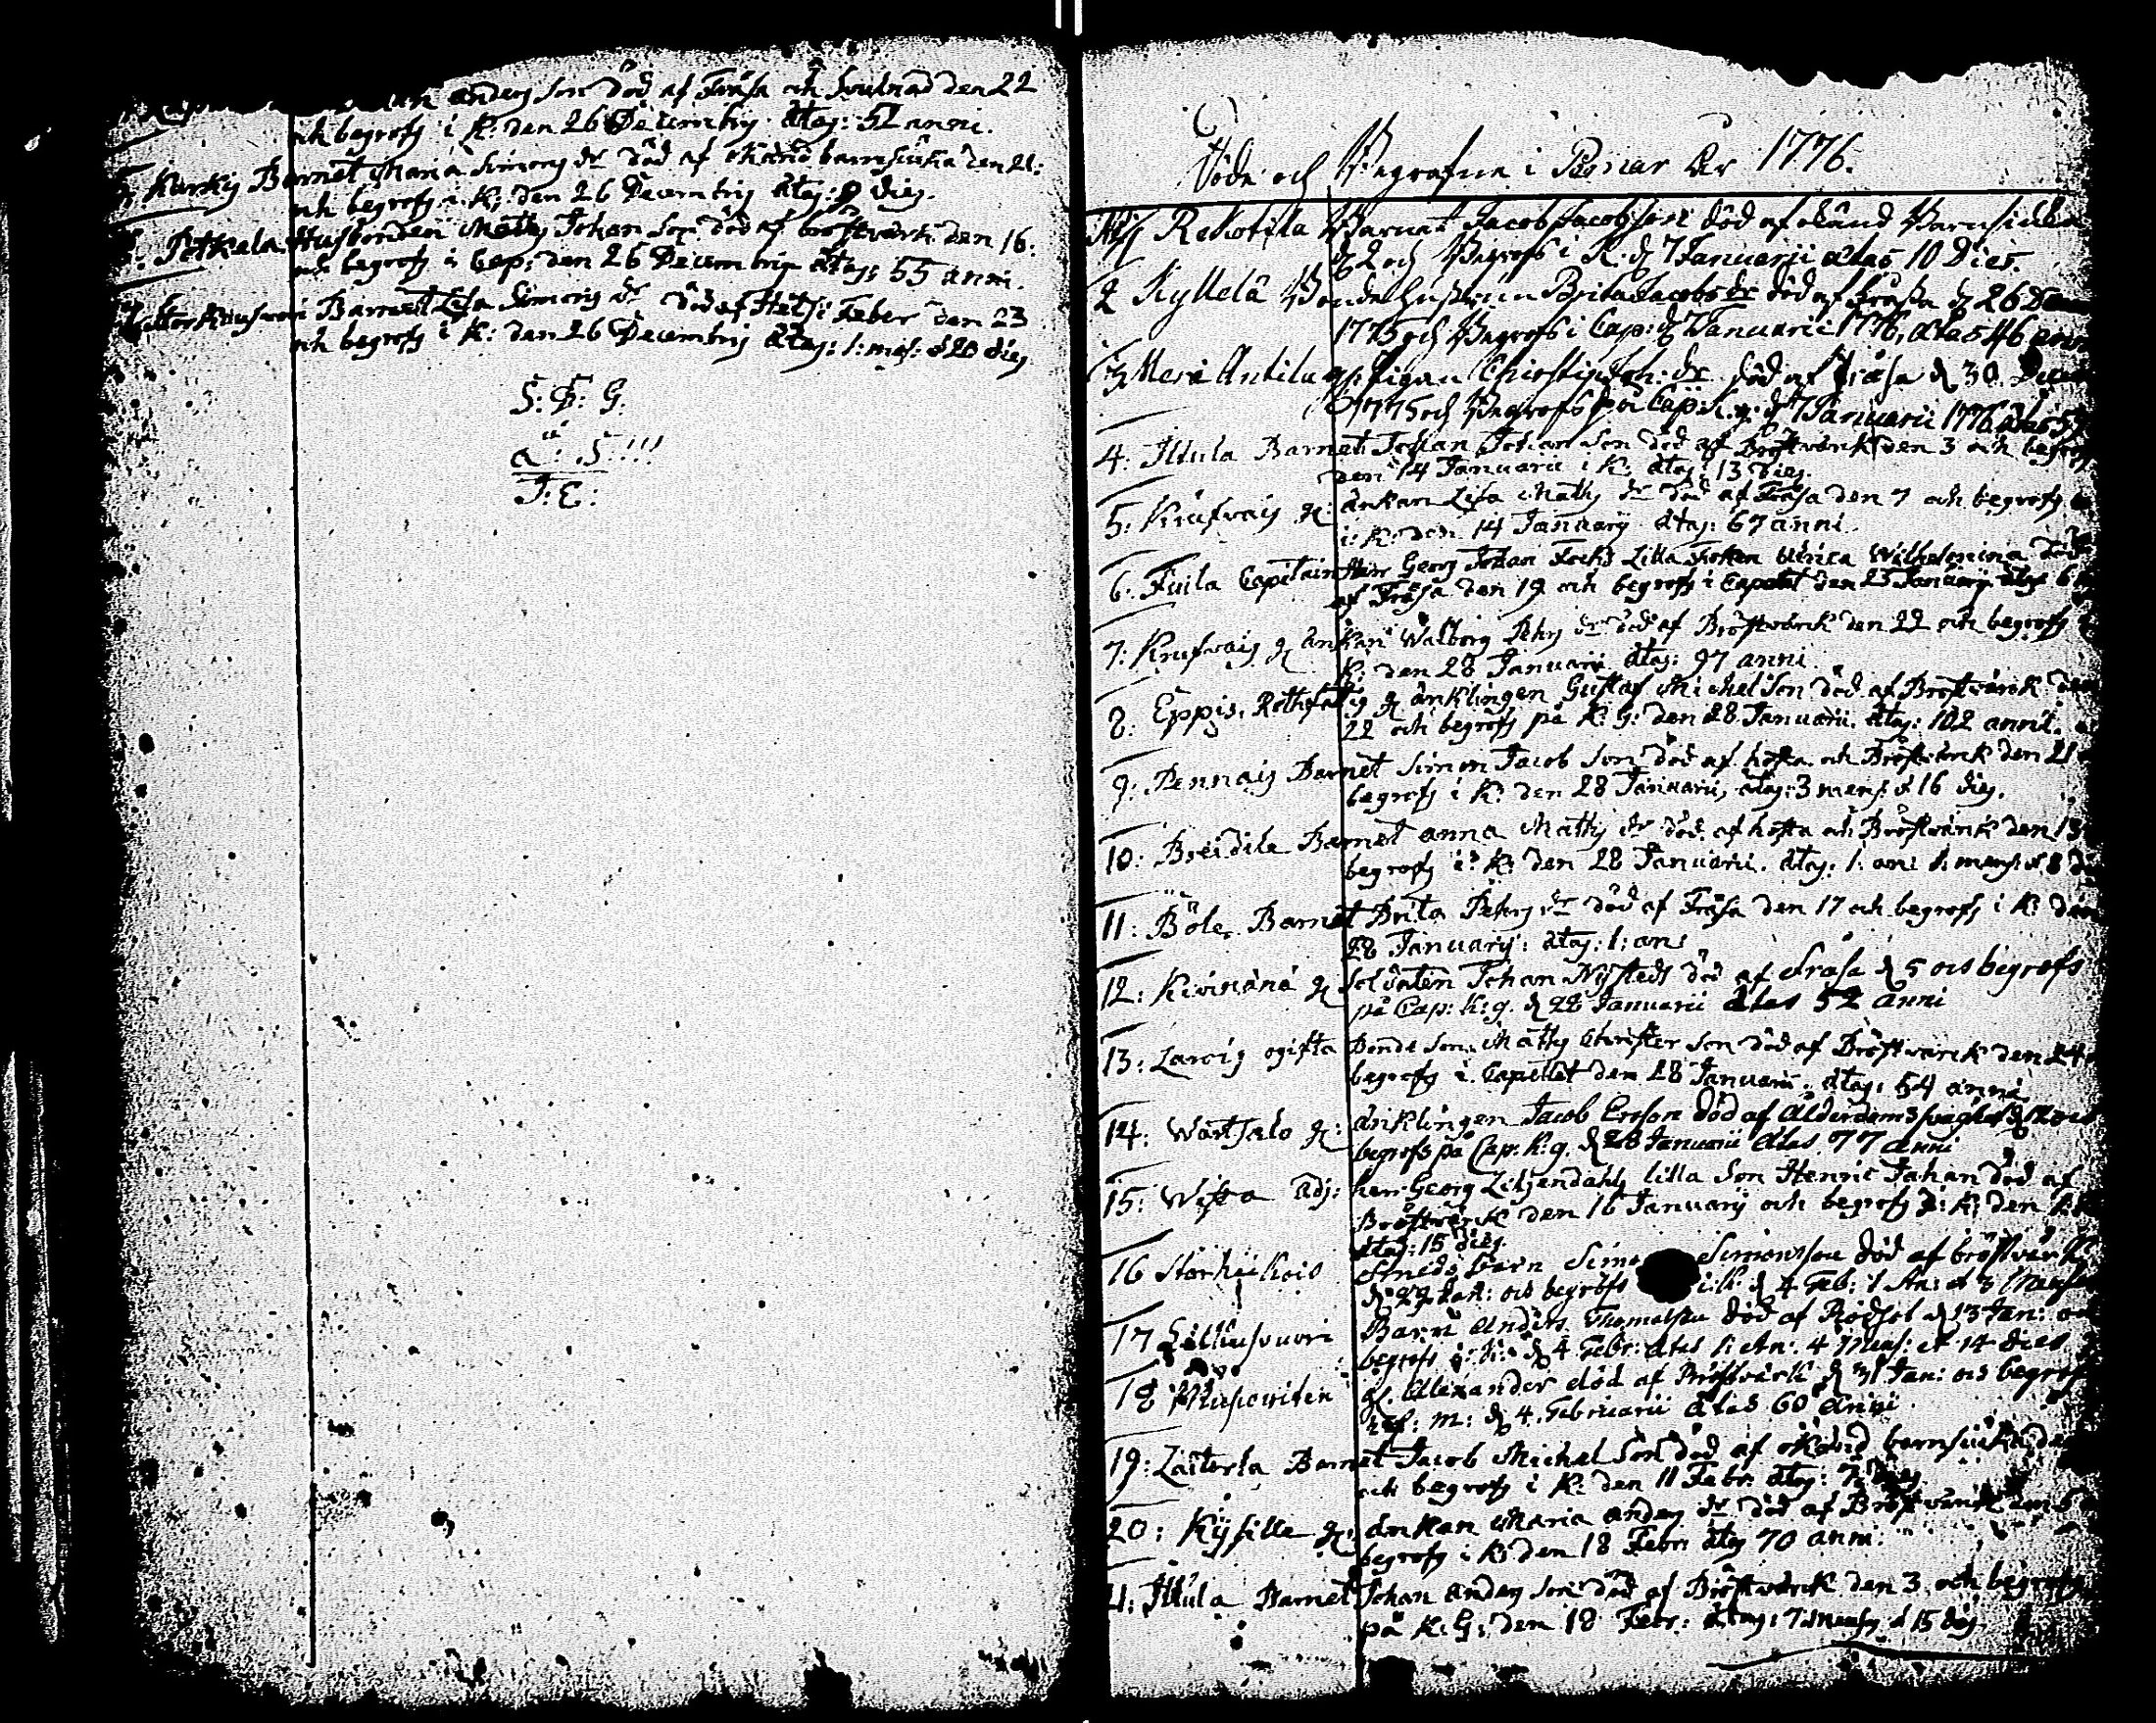 anders Son död af Fråsa och den 22
och begrofs i K: den 26 Decembris ætas: 52 anni.
Kurkis Barnet Maria Simons dr död af okänd barnsiuka den 21:
och begrofs i K: den 26 Decembris ætas: 9 dies.
Potkala Husbonden Matts Johan Son död af bröstvärk den 16:
och begrofs i Cap: den 26 Decembris ætas: 55 anni.
Barnet Lisa Simons dr död af Hetsi Feber den 23
och begrofs i K: den 26 Decembris ætas: 1: mes: & 20 dies
S: D: G:
a: S:!!!
J: E:
Döde och Begrafne i Pemar År 1776.
Rekotila Barnet Jacob Jacobsson död af okänd Barnsiuka
d 2 och Begrofs i K. d 7 Januarii ætas 10 Dies.
2 Kyllelä Bonde Hustrun Brita Jacobs dr död af fråssa d 26 Decem
1775 och Begrofs i Cap: d 7 Januarii 1776, ætas 46 anni
3 Meri Antila gl: Pigan Christin Joh: dr död af fråsa d 30 Decem
1775 och Begrofs på Cap: K. g. d 7 Januarii 1776 ætas 57
4: Iltula Barnet Johan Johan Son död af Bröstvärk den 3 och begrofs
den 14 Januarii i K: ætas: 13 dies.
5: Krufvais gl: änkan Lisa Matts dr död af Fråsa den 7 och begrofs
i K: den 14 Januarij ætas: 67 anni.
6: Fuila Capitain Herr Georg Johan Focks Lilla Froken Ulrica Wilhelmina död
af Fråsa den 19 och begrofs i Capellet den 25 Januarij ætas 6
7: Krufvais gl änkan Walborg Pehrs dr död af Bröstvärck den 22 och begrofs
K: den 28 Januarij ætas: 97 anni
8: Eppis, Rothfattig gl änklingen Gustaf Michel Son död af Bröstvärck den
22 och begrofs på K: G: den 28 Januarii. ætas: 102 anni.
9: Pennais Barnet Simon Jacob Son död af hosta och Bröstvärck den 21
begrofs i K: den 28 Januarii, ætas: 3 mens: & 16 dies.
10: Breidila Barnet anna Matts dr död af hosta och Bröstvärck den 13
begrofs i K: den 28 Januarii. ætas: 1: an: 1: mens: & 8
11: Böle, Barnet Brita Pehrs dr död af Fråsa den 17 och begrofs i K: den
28 Januarij: ætas: 1: an:
12: Kivinänä gl Soldaten Johan Nystedt död af Fråsa d 5 och begrofs
på Cap: K: g. d 28 Januarii ætas 52 anni
13: Larvis ogifta Bonde Son Matts Christer Son död af Bröstvärck den 24
begrofs i Capellet den 28 Januarii. ætas: 54 anni
14: Wartsalo gl: änklingen Jacob Ersson död af Ålderdoms svaghet
begrofs på Cap. K: g. d 28 Januarii ætas 77 anni
15: Wista Adj: herr Georg Liljendahls lilla Son Henric Johan död af
Bröstvärck den 16 Januarij och begrofs i: K: den
ætas: 15 dies
16 Starkeikois Smeds barn Simo Simonsson död af bröstvärk
d 29 Jan: och begrofs i K: d 4 Feb: 1 An: & 3 Mens
17 Barn Anders Thomasson död af Rödsot d 13 Jan: och
begrofs i: K: d 4 Febr: ætas 1: An: 4 Mens: et 14 dies
18 gl. Alexander död af Bröstvärk d 31 Jan: och begrofs
M: d 4. Februarii ætas 60 Anni.
19: Barnet Jacob Michel Son död af okänd barnsiuka
och begrofs i K: den 11 Febr: ætas: 7
20: Kysille gl: änkan Maria anders dr död af Bröstvärck
begrofs i K: den 18 Febr: ætas 70 anni.
Iltula Barnet Johan anders Son död af Bröstvärck den 3 och begrofs
på K: G: den 18 Febr: ætas: 7 mens & 15 dies